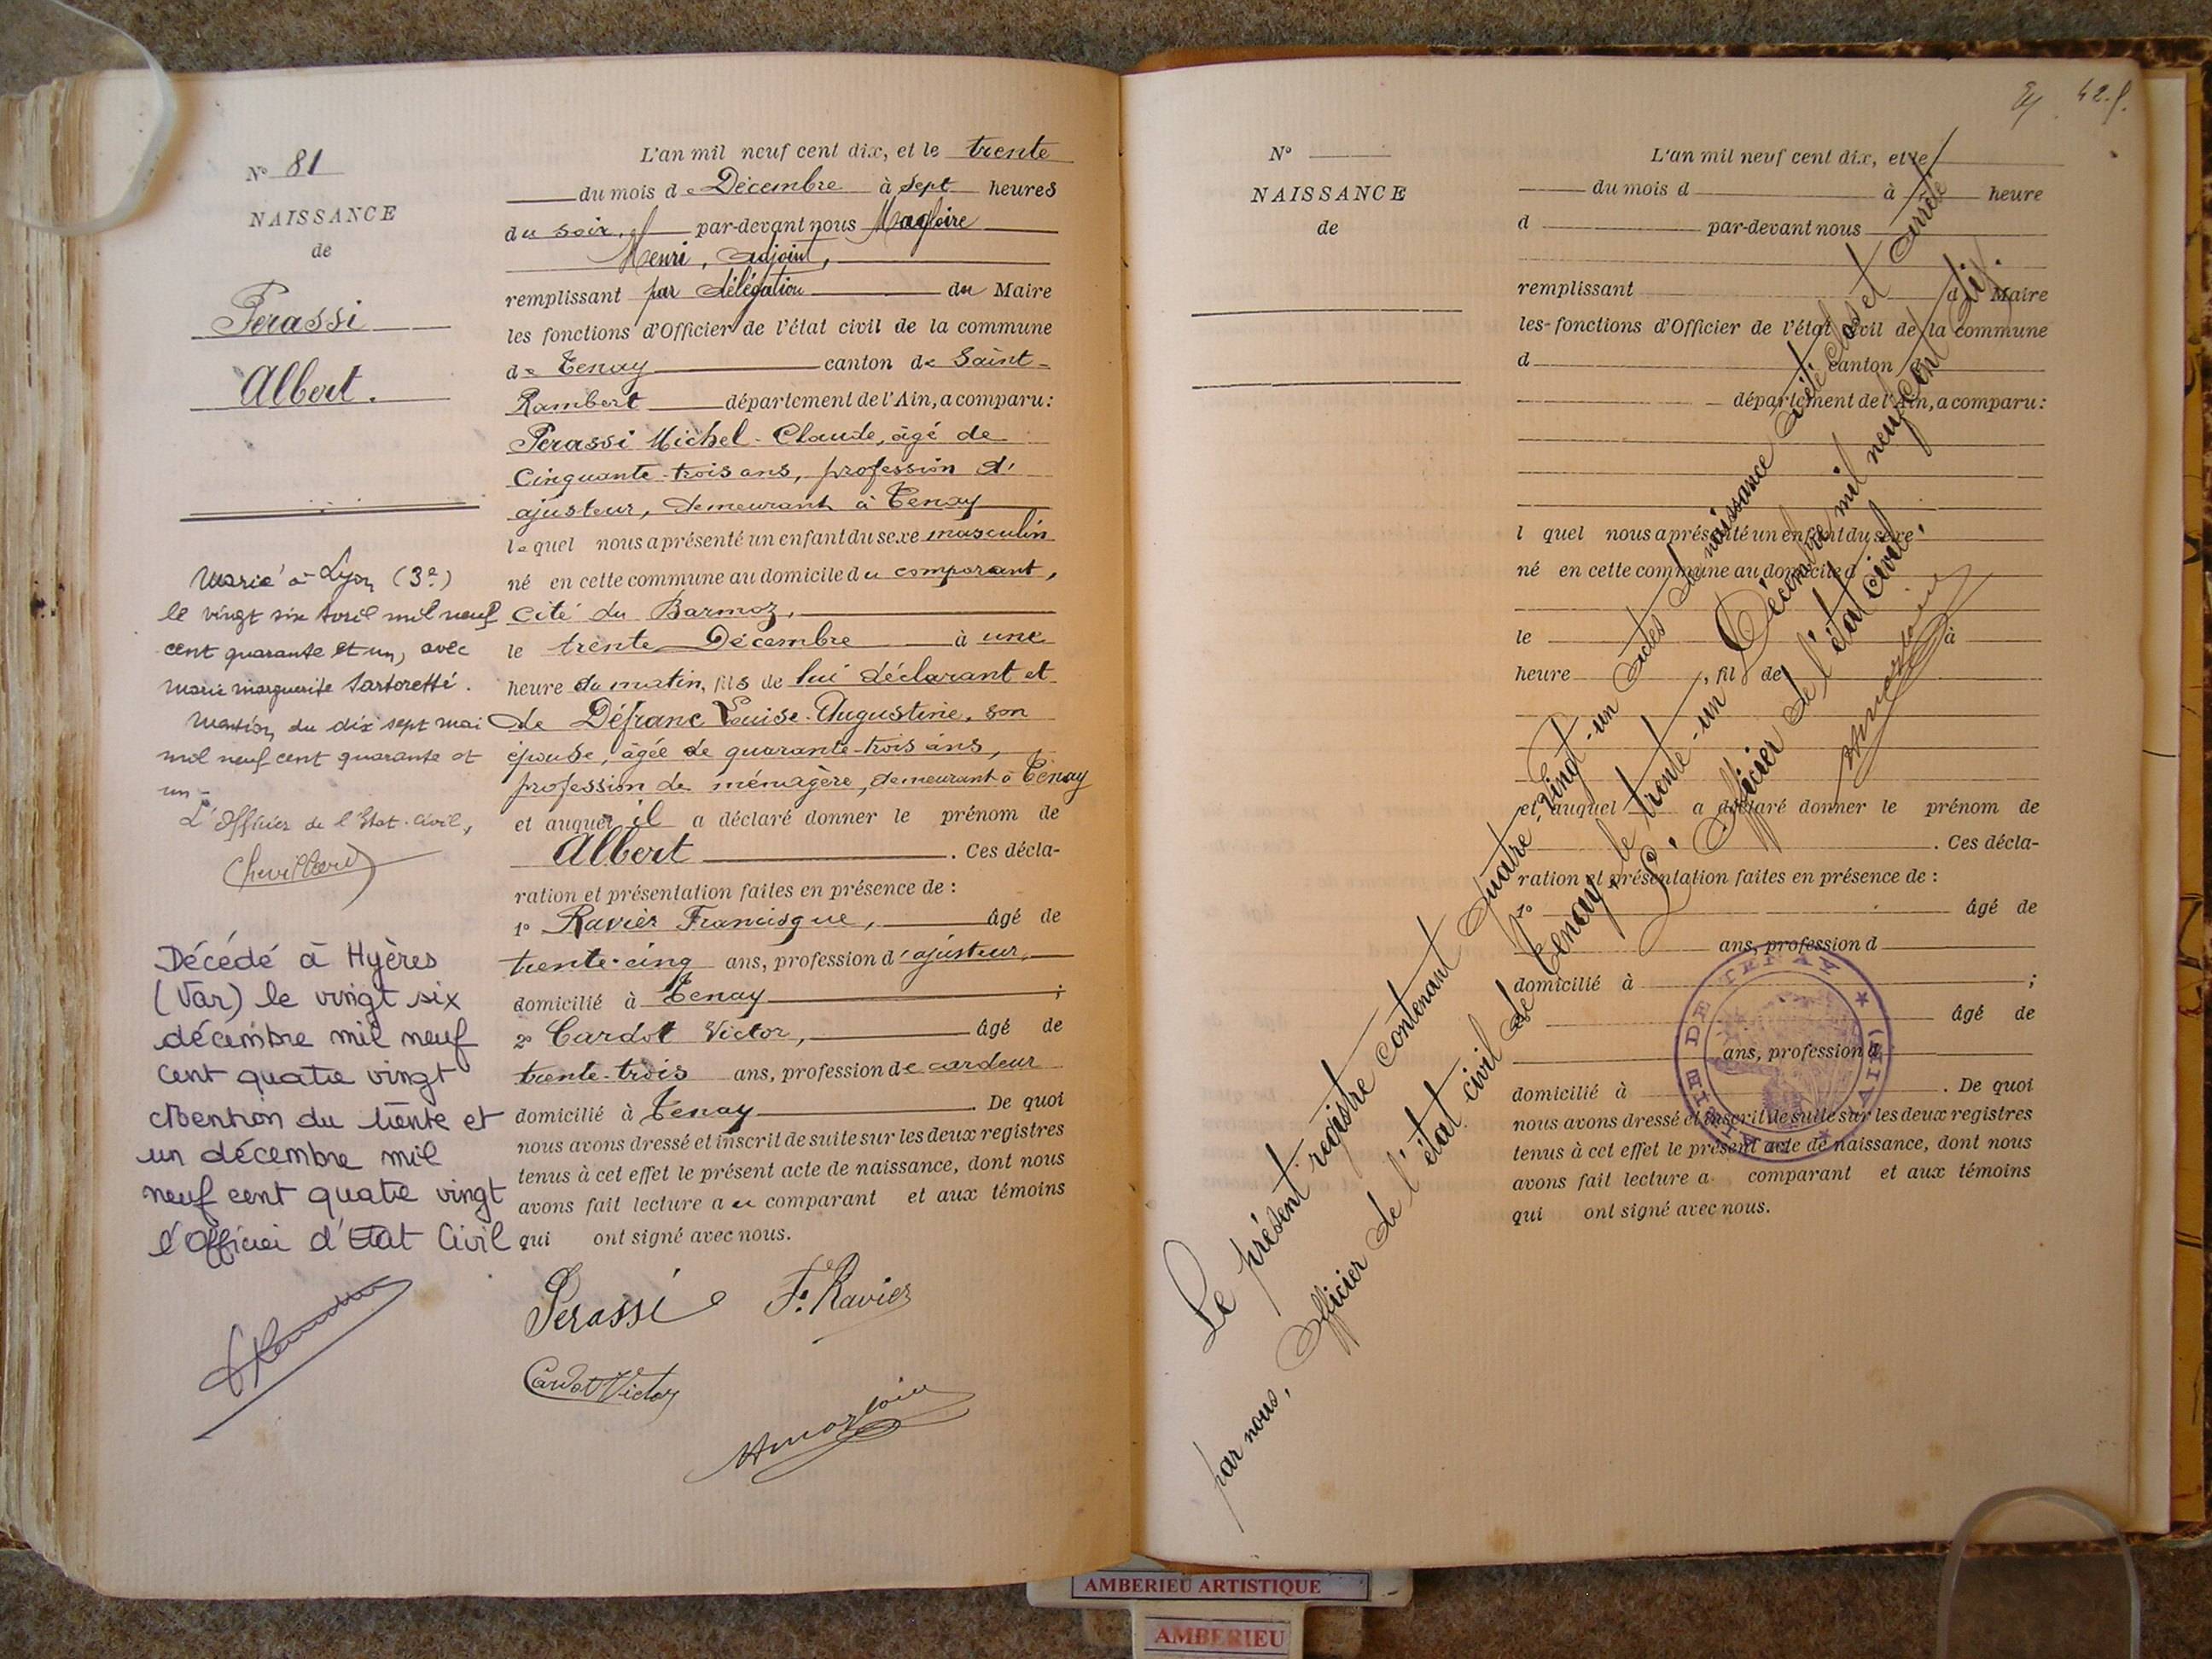 N° 81
NAISSANCE
de
Perassi
Albert.
Marié à Lyon (3e)
le vingt six Avril mil neuf
cent quarante et un, avec
Marie Marguerite Sartoretti.
Mention du dix sept mai
mil neuf cent quarante et
un -
L'Officier de l'Etat-Civil,
Décédé à Hyères
(Var) le vingt six
décembre mil neuf
cent quatre vingt
Mention du trente et
un décembre mil
neuf cent quatre vingt
l'Officier d'Etat Civil
L'an mil neuf cent dix, et le trente
du mois de Décembre à sept heures
du soir, par-devant nous Magloire
Henri, adjoint,
remplissant par délégation du Maire
les fonctions d'Officier de l'état civil de la commune
de Tenay canton de Saint-
Rambert département de l'Ain, a comparu:
Perassi Michel-Claude, âgé de
cinquante-trois ans, profession d'
ajusteur, demeurant à Tenay
lequel nous a présenté un enfant du sexe masculin
né en cette commune au domicile du comparant,
cité du Barmoz,
le trente Décembre à une
heure du matin, fils de lui déclarant et
de Défranc Louise-Augustine, son
épouse, âgée de quarante-trois ans,
profession de ménagère, demeurant à Tenay
et auquel il a déclaré donner le prénom de
Albert . Ces décla-
ration et présentation faites en présence de :
1° Ravier Francisque, âgé de
trente-cinq ans, profession d'ajusteur,
domicilié à Tenay ;
2° Cardot Victor, âgé de
trente-trois ans, profession de cardeur
domicilié à Tenay . De quoi
nous avons dressé et inscrit de suite sur les deux registres
tenus à cet effet le présent acte de naissance, dont nous
avons fait lecture au comparant et aux témoins
qui ont signé avec nous.
Perassi F. Ravier
Cardot Victor
42. f.
N°
NAISSANCE
de
L'an mil neuf cent dix, et le
du mois d à heure
d par-devant nous
remplissant d Maire
les fonctions d'Officier de l'état civil de la commune
d canton d
département de l'Ain, a comparu:
l quel nous a présenté un enfant du sexe
né en cette commune au domicile d
le à
heure , fil de
et auquel a déclaré donner le prénom de
. Ces décla-
ration et présentation faites en présence de :
1° âgé de
ans, profession d
domicilié à ;
âgé de
ans, profession d
domicilié à . De quoi
nous avons dressé et inscrit de suite sur les deux registres
tenus à cet effet le présent acte de naissance, dont nous
avons fait lecture a comparant et aux témoins
qui ont signé avec nous.
Le présent registre contenant quatre-vingt-un actes de naissance a été clos et arrêté
par nous, Officier de l'état civil de Tenay, le trente-un Décembre mil neuf cent dix.
L'Officier de l'état civil,
MAIRIE DE TENAY ★ (AIN) ★
AMBERIEU ARTISTIQUE
AMBERIEU